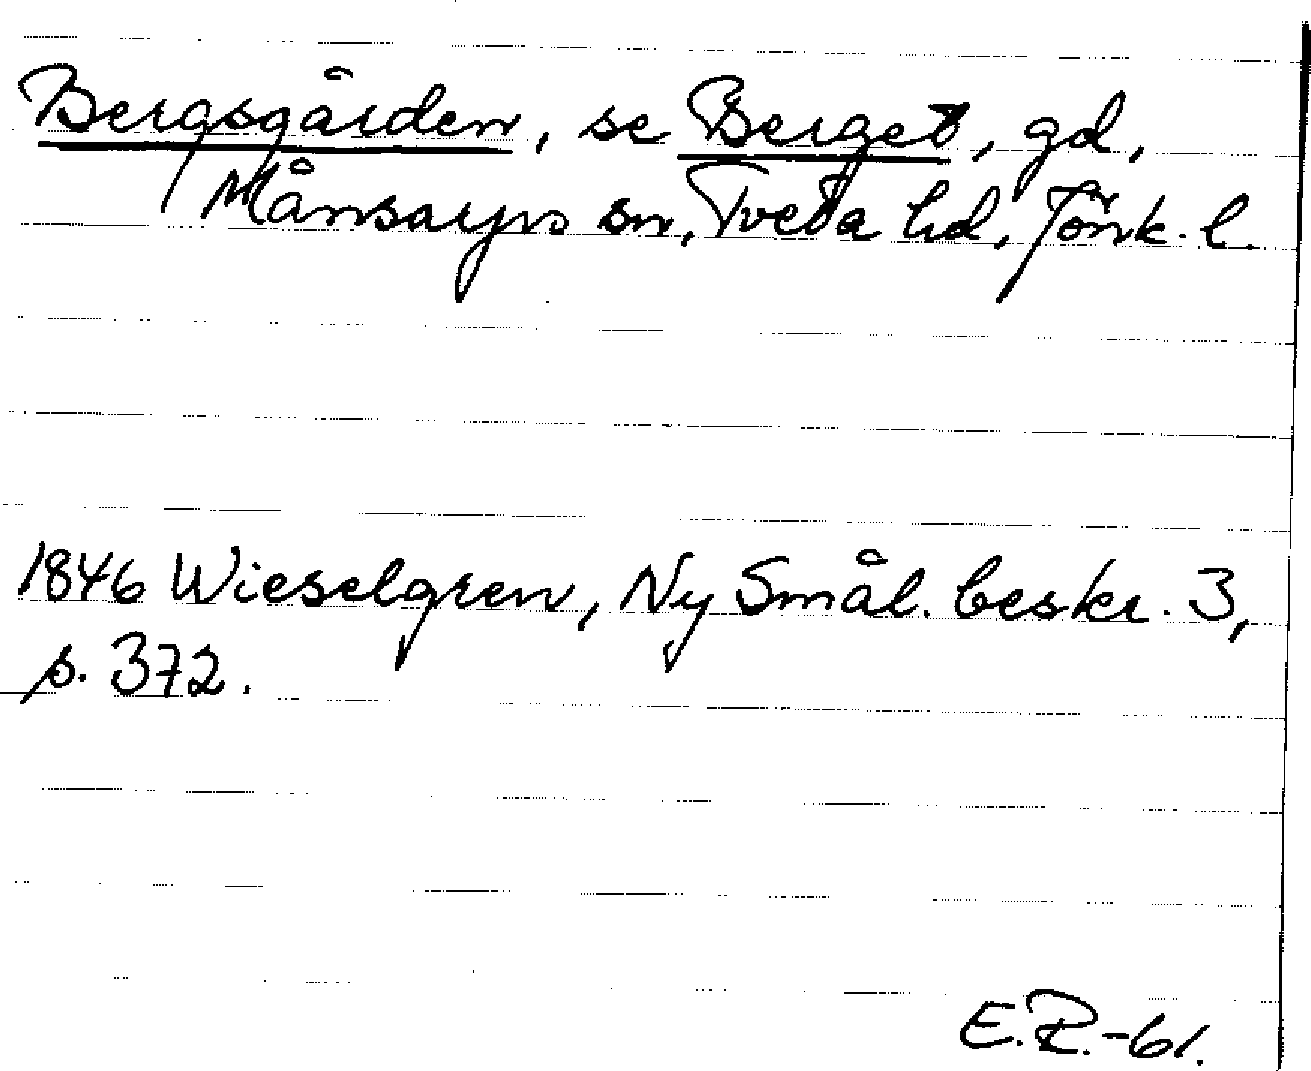 Bergsgården, se Berget, gd,
Månsarps sn, Tveta hd, Jönk. l.
1846 Wieselgren, Ny Smål. beskr. 3,
s. 372.
E.R.-61.